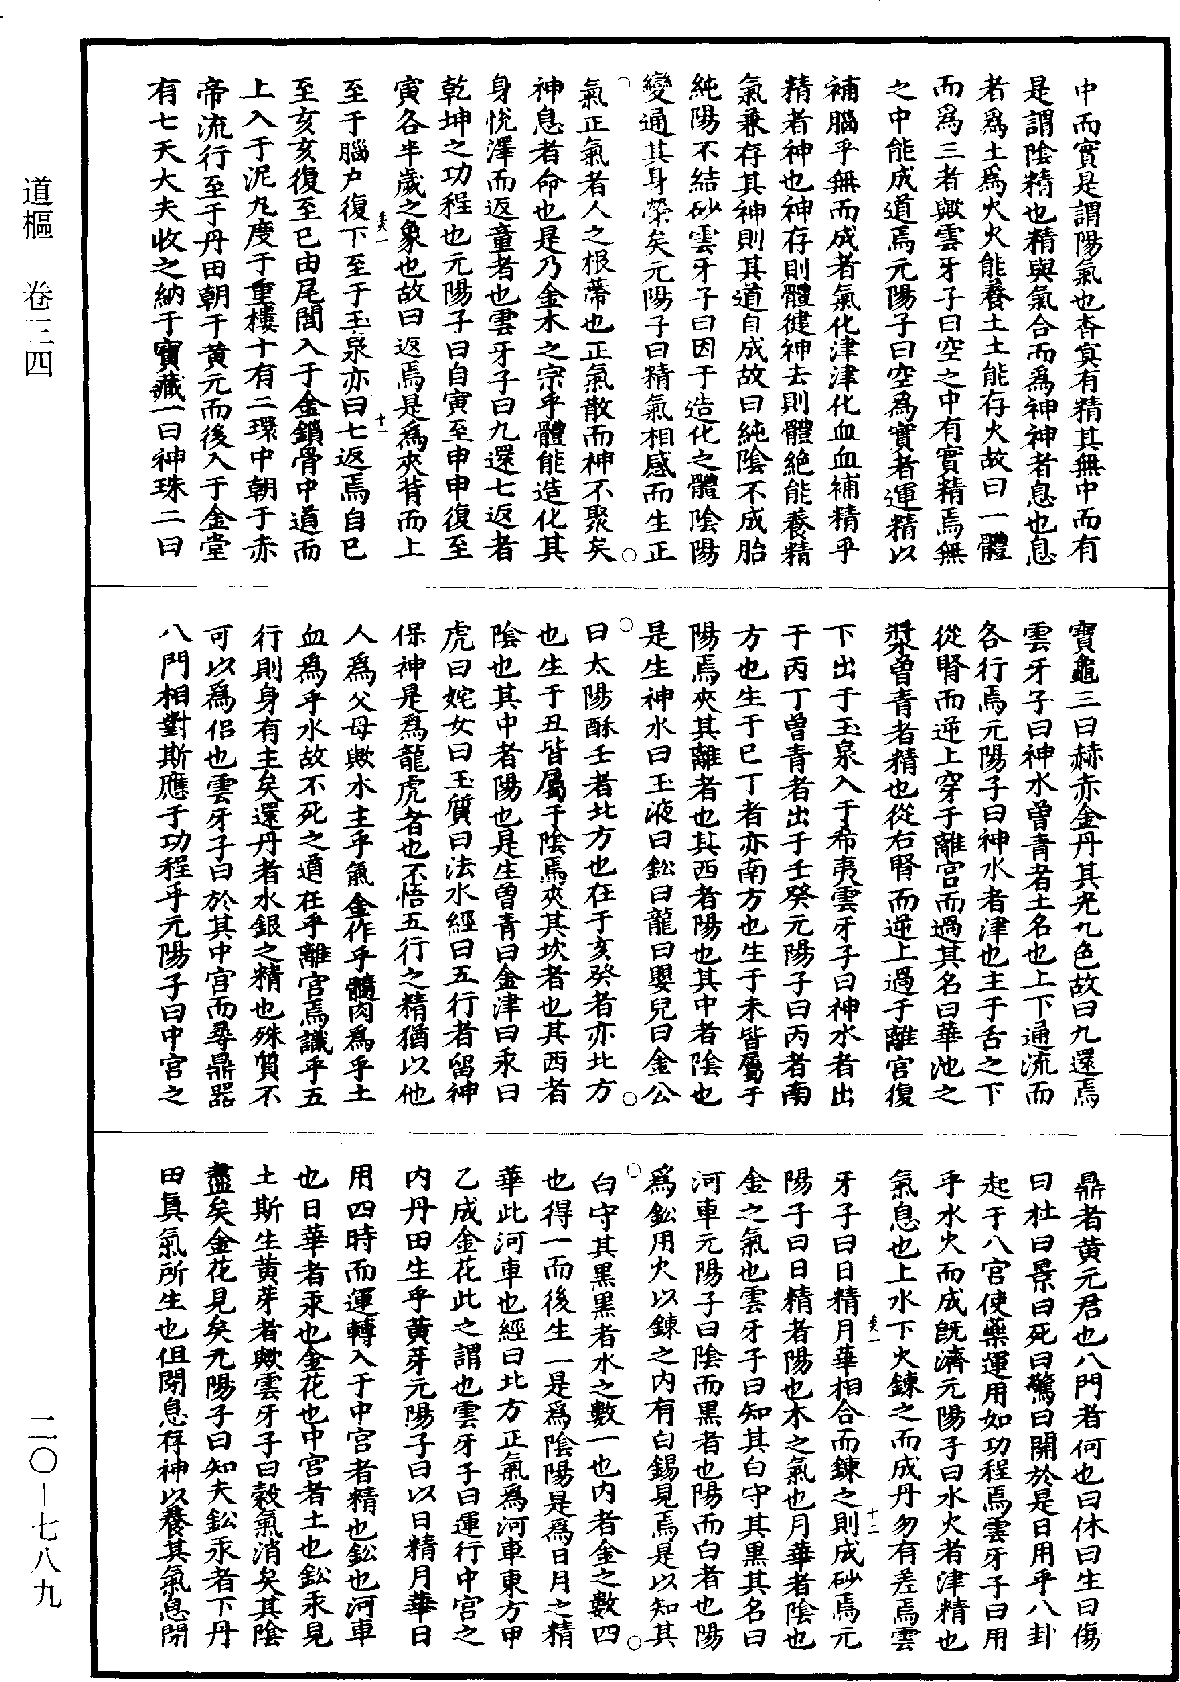 道樞　卷三四
二〇—七八九
中而實是謂陽氣也杳冥有精其無中而有
是謂陰精也精與氣合而爲神神者息也息
者爲土爲火火能養土土能存火故曰一體
而爲三者歟雲牙子曰空之中有實精焉無
之中能成道焉元陽子曰空爲實者運精以
補腦乎無而成者氣化津津化血血補精乎
精者神也神存則體健神去則體絕能養精
氣兼存其神則其道自成故曰純陰不成胎
純陽不結砂雲牙子曰因于造化之體陰陽
變通其身榮矣元陽子曰精氣相感而生正
氣正氣者人之根蒂也正氣散而神不聚矣
神息者命也是乃金木之宗乎體能造化其
身悅澤而返童者也雲牙子曰九還七返者
乾坤之功程也元陽子曰自寅至申申復至
寅各半歲之象也故曰返焉是爲夾脊而上
至于腦户復下至于玉泉亦曰七返焉自巳
至亥亥復至巳由尾閭入于金鎖骨中道而
上入于泥丸度于重樓十有二環中朝于赤
帝流行至于丹田朝于黃元而後入于金堂
有七天大夫收之納于寶藏一曰神珠二曰
寶龜三曰赫赤金丹其光九色故曰九還焉
雲牙子曰神水曾青者土名也上下通流而
各行焉元陽子曰神水者津也主于舌之下
從腎而逆上穿于離宮而過其名曰華池之
漿曾青者精也從右腎而逆上過于離宮復
下出于玉泉入于希夷雲牙子曰神水者出
于丙丁曾青者出于壬癸元陽子曰丙者南
方也生于巳丁者亦南方也生于未皆屬于
陽焉夾其離者也其西者陽也其中者陰也
是生神水曰玉液曰鈆曰龍曰嬰兒曰金公
曰太陽酥壬者北方也在于亥癸者亦北方
也生于丑皆屬于陰焉夾其坎者也其西者
陰也其中者陽也是生曾青曰金津曰汞曰
虎曰姹女曰玉質曰法水經曰五行者留神
保神是爲龍虎者也不悟五行之精猶以他
人爲父母歟木主乎氣金作乎髓肉爲乎土
血爲乎水故不死之道在乎離宮焉識乎五
行則身有主矣還丹者水銀之精也殊質不
可以爲侶也雲牙子曰於其中宮而尋鼎器
八門相對斯應于功程乎元陽子曰中宮之
鼎者黃元君也八門者何也曰休曰生曰傷
曰杜曰景曰死曰驚曰開於是日用乎八卦
起于八宮使藥運用如功程焉雲牙子曰用
乎水火而成旣濟元陽子曰水火者津精也
氣息也上水下火鍊之而成丹勿有差焉雲
牙子曰日精月華相合而鍊之則成砂焉元
陽子曰日精者陽也木之氣也月華者陰也
金之氣也雲牙子曰知其白守其黑其名曰
河車元陽子曰陰而黑者也陽而白者也陽
爲鈆用火以鍊之內有白錫見焉是以知其
白守其黑黑者水之數一也內者金之數四
也得一而後生一是爲陰陽是爲日月之精
華此河車也經曰北方正氣爲河車東方甲
乙成金花此之謂也雲牙子曰運行中宮之
內丹田生乎黃芽元陽子曰以日精月華日
用四時而運轉入于中宮者精也鈆也河車
也日華者汞也金花也中宮者土也鈆汞見
土斯生黃芽者歟雲牙子曰穀氣消矣其陰
盡矣金花見矣元陽子曰知夫鈆汞者下丹
田真氣所生也但閉息存神以養其氣息閉